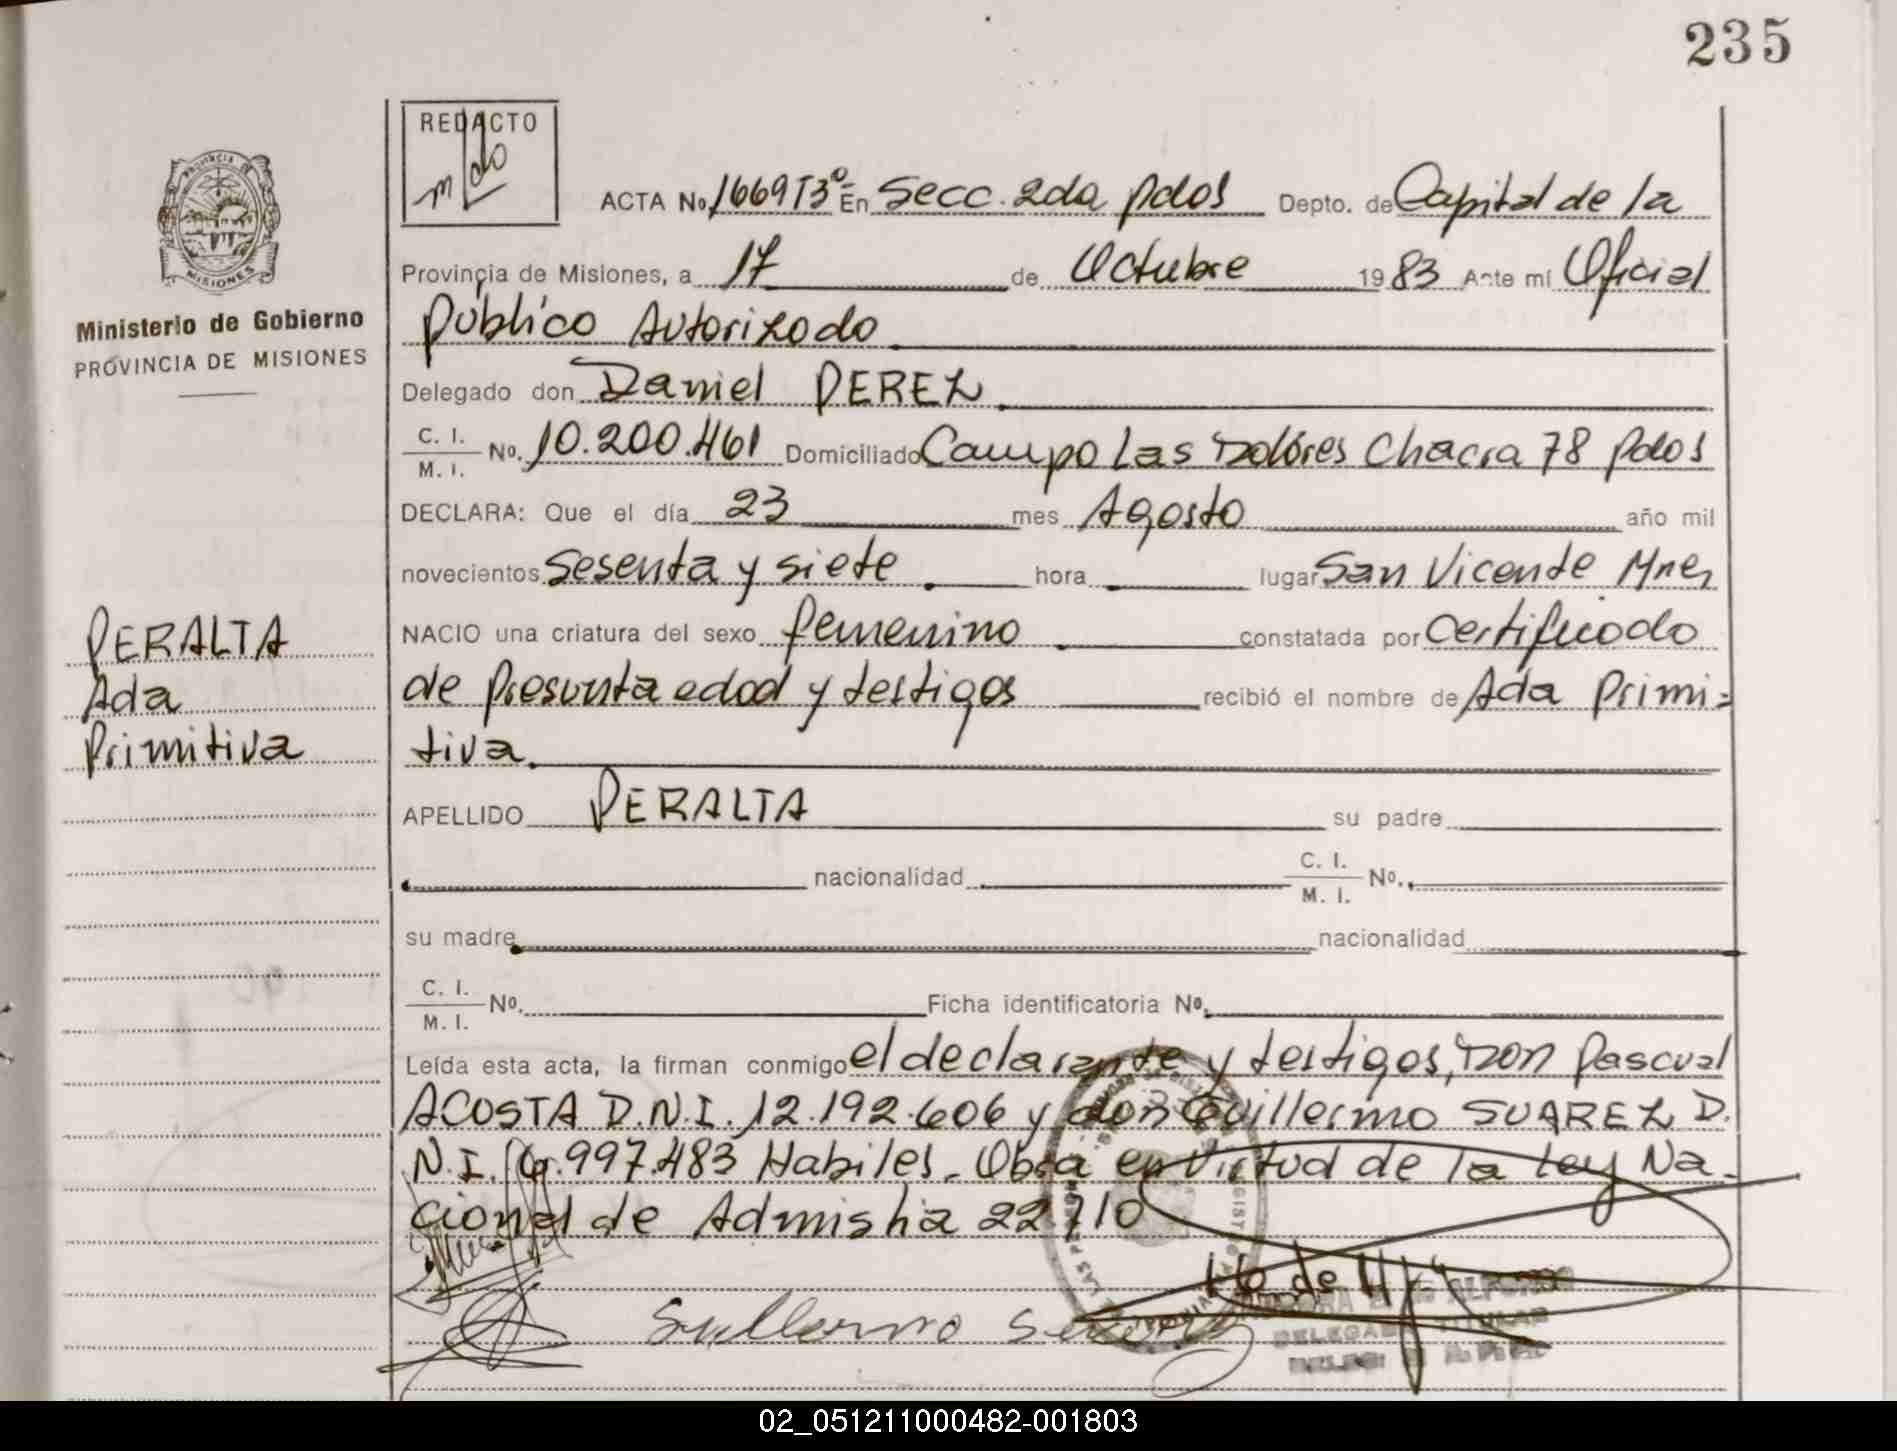 235
REDACTO
ACTA No. 1669 T3º En Secc. 2da pdas Depto. de Capital de la
Provincia de Misiones, a 17 de Octubre 1983 Ante mí Oficial
Público Autorizado
Delegado don Daniel PEREZ
C. I.
M. I. No. 10.200.461 Domiciliado Campo Las Dolores Chacra 78 pdas
DECLARA: Que el día 23 mes Agosto año mil
novecientos sesenta y siete hora lugar San Vicente Mnes
NACIO una criatura del sexo femenino constatada por Certificado
de presunta edad y testigos recibió el nombre de Ada Primi=
tiva
APELLIDO PERALTA su padre
nacionalidad C. I.
M. I. No.
su madre nacionalidad
C. I.
M. I. No. Ficha identificatoria No.
Leída esta acta, la firman conmigo el declarante y testigos, Don Pascual
ACOSTA D.N.I. 12.192.606 y don Guillermo SUAREZ D.
N.I. 997.483 Habiles. Obra en Virtud de la Ley Na-
cional de Admishia 22.710
Guillermo
Ministerio de Gobierno
PROVINCIA DE MISIONES
PERALTA
Ada
Primitiva
PROVINCIA
MISIONES
02_051211000482-001803